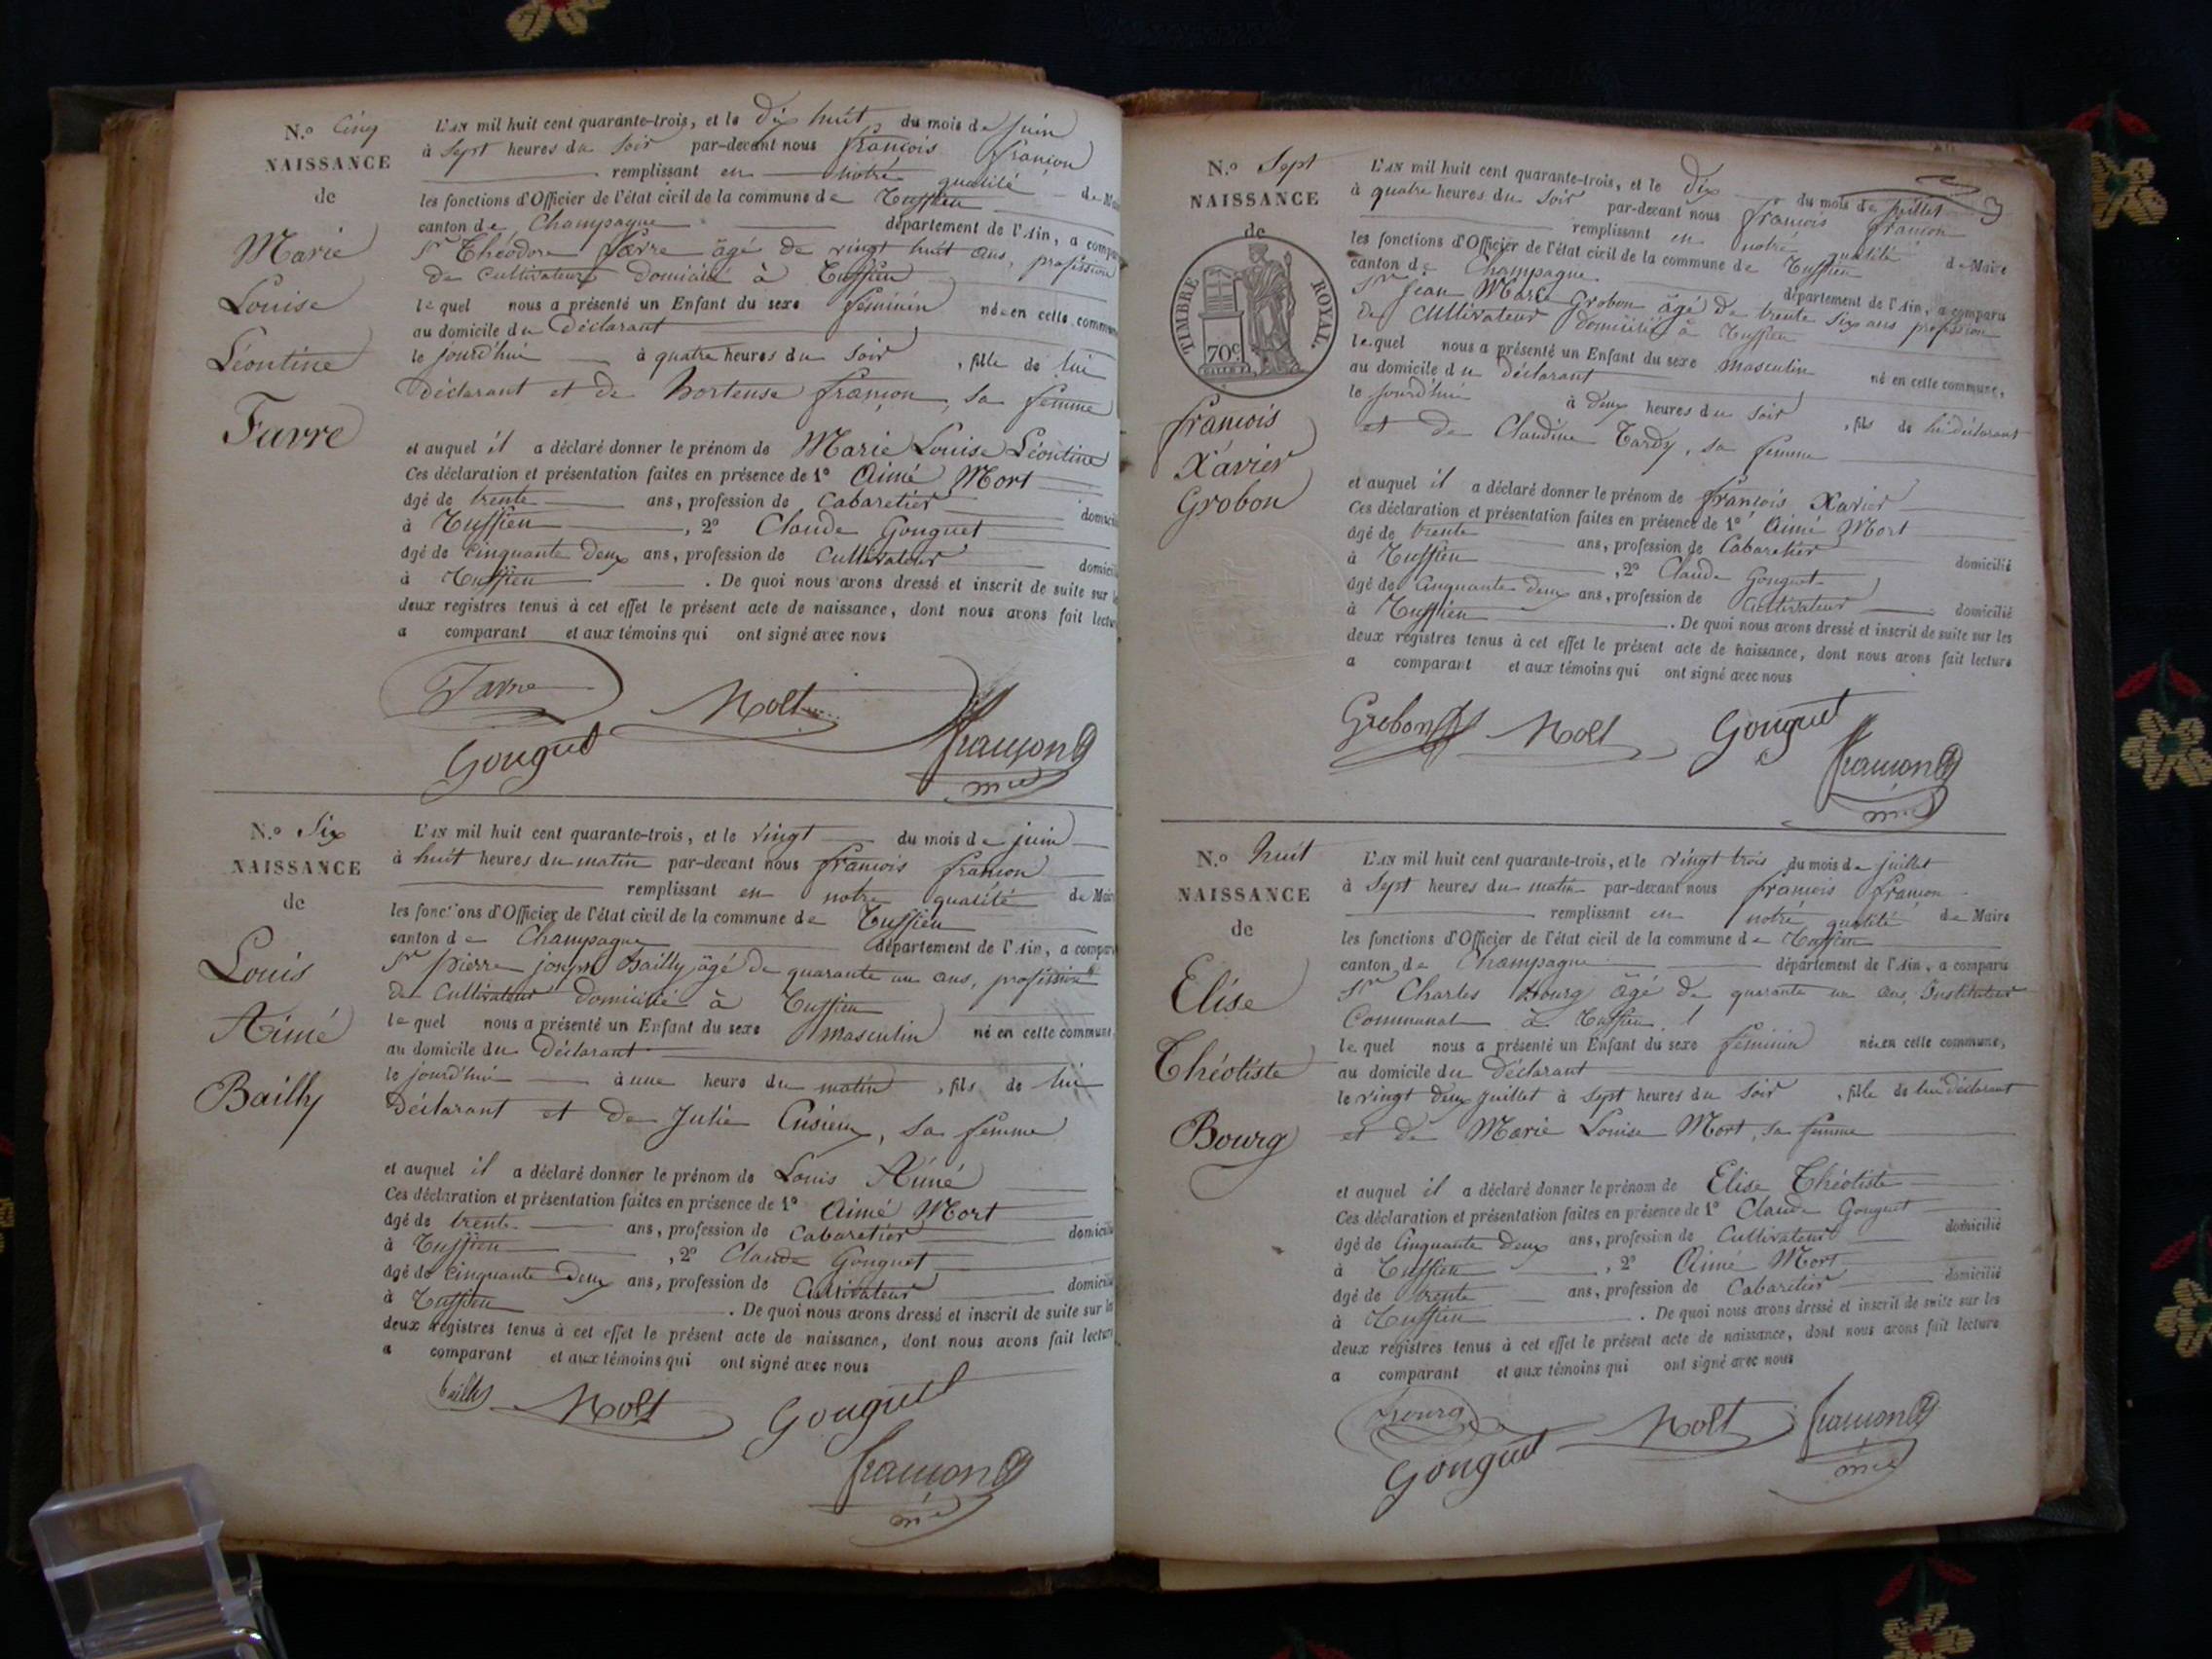 N.º Cinq
NAISSANCE
de
Marie
Louise
Léontine
Favre
L'AN mil huit cent quarante-trois, et le dix huit du mois de juin
à Sept heures du Soir par-devant nous françois françon
remplissant en notre qualité de
les fonctions d'Officier de l'état civil de la commune de Tussieu
canton de Champagne département de l'Ain, a
Sr Théodore favre âgé de vingt huit ans, profession
de Cultivateur domicilié à Tussieu
lequel nous a présenté un Enfant du sexe féminin née en cette
au domicile du Déclarant
le jourd'hui à quatre heures du Soir, fille de lui
Déclarant et de hortense françon, Sa femme
et auquel il a déclaré donner le prénom de Marie Louise Léontine
Ces déclaration et présentation faites en présence de 1º Aimé Mort
âgé de trente ans, profession de Cabaretier
à Tussieu, 2º Claude Gonguet
âgé de Cinquante Deux ans, profession de Cultivateur
à Tussieu. De quoi nous avons dressé et inscrit de suite sur
deux registres tenus à cet effet le présent acte de naissance, dont nous avons fait
a comparant et aux témoins qui ont signé avec nous
Favre Molt
Gouguet françon
N.º Six
NAISSANCE
de
Louis
Aimé
Bailly
L'AN mil huit cent quarante-trois, et le vingt du mois de juin
à huit heures du matin par-devant nous françois françon
remplissant en notre qualité de
les fonctions d'Officier de l'état civil de la commune de Tussieu
canton de Champagne département de l'Ain, a
Sr pierre joseph Bailly âgé de quarante un ans, profession
de Cultivateur Domicilié à Tussieu
lequel nous a présenté un Enfant du sexe masculin né en cette commune
au domicile du Déclarant
le jourd'hui à une heure du matin, fils de lui
Déclarant et de Julie Cusieux, Sa femme
et auquel il a déclaré donner le prénom de Louis Aimé
Ces déclaration et présentation faites en présence de 1º Aimé Mort
âgé de trente ans, profession de Cabaretier
à Tussieu, 2º Claude Gonguet
âgé de Cinquante Deux ans, profession de Cultivateur
à Tussieu. De quoi nous avons dressé et inscrit de suite sur
deux registres tenus à cet effet le présent acte de naissance, dont nous avons fait
a comparant et aux témoins qui ont signé avec nous
bailly Molt Gouguet
françon
N.º Sept
NAISSANCE
de
TIMBRE ROYAL.
70c
françois
Xavier
Grobon
L'AN mil huit cent quarante-trois, et le Dix du mois de juillet
à quatre heures du Soir par-devant nous françois françon
remplissant en notre qualité de Maire
les fonctions d'Officier de l'état civil de la commune de Tussieu
canton de Champagne département de l'Ain, a comparu
Sr Jean Marie Grobon âgé de trente Six ans profession
de Cultivateur domicilié à Tussieu
lequel nous a présenté un Enfant du sexe masculin né en cette commune,
au domicile du déclarant
le jourd'hui à deux heures du Soir, fils de lui déclarant
et de Claudine Tardy, sa femme
et auquel il a déclaré donner le prénom de françois Xavier
Ces déclaration et présentation faites en présence de 1º Aimé Mort
âgé de trente ans, profession de Cabaretier
à Tussieu, 2º Claude Gonguet domicilié
âgé de Cinquante deux ans, profession de Cultivateur domicilié
à Tussieu. De quoi nous avons dressé et inscrit de suite sur les
deux registres tenus à cet effet le présent acte de naissance, dont nous avons fait lecture
a comparant et aux témoins qui ont signé avec nous
Grobon Molt Gouguet
françon
N.º huit
NAISSANCE
de
Elise
Théotiste
Bourg
L'AN mil huit cent quarante-trois, et le vingt trois du mois de juillet
à Sept heures du matin par-devant nous françois françon
remplissant en notre qualité de Maire
les fonctions d'Officier de l'état civil de la commune de Tussieu
canton de Champagne département de l'Ain, a comparu
Sr Charles Bourg âgé de quarante un ans, Instituteur
Communal à Tussieu
lequel nous a présenté un Enfant du sexe féminin née en cette commune,
au domicile du Déclarant
le vingt deux juillet à Sept heures du Soir, fille de lui déclarant
et de Marie Louise Mort, sa femme
et auquel il a déclaré donner le prénom de Elise Théotiste
Ces déclaration et présentation faites en présence de 1º Claude Gonguet
âgé de Cinquante Deux ans, profession de Cultivateur domicilié
à Tussieu, 2º Aimé Mort
âgé de trente ans, profession de Cabaretier domicilié
à Tussieu. De quoi nous avons dressé et inscrit de suite sur les
deux registres tenus à cet effet le présent acte de naissance, dont nous avons fait lecture
a comparant et aux témoins qui ont signé avec nous
Bourg Molt françon
Gouguet